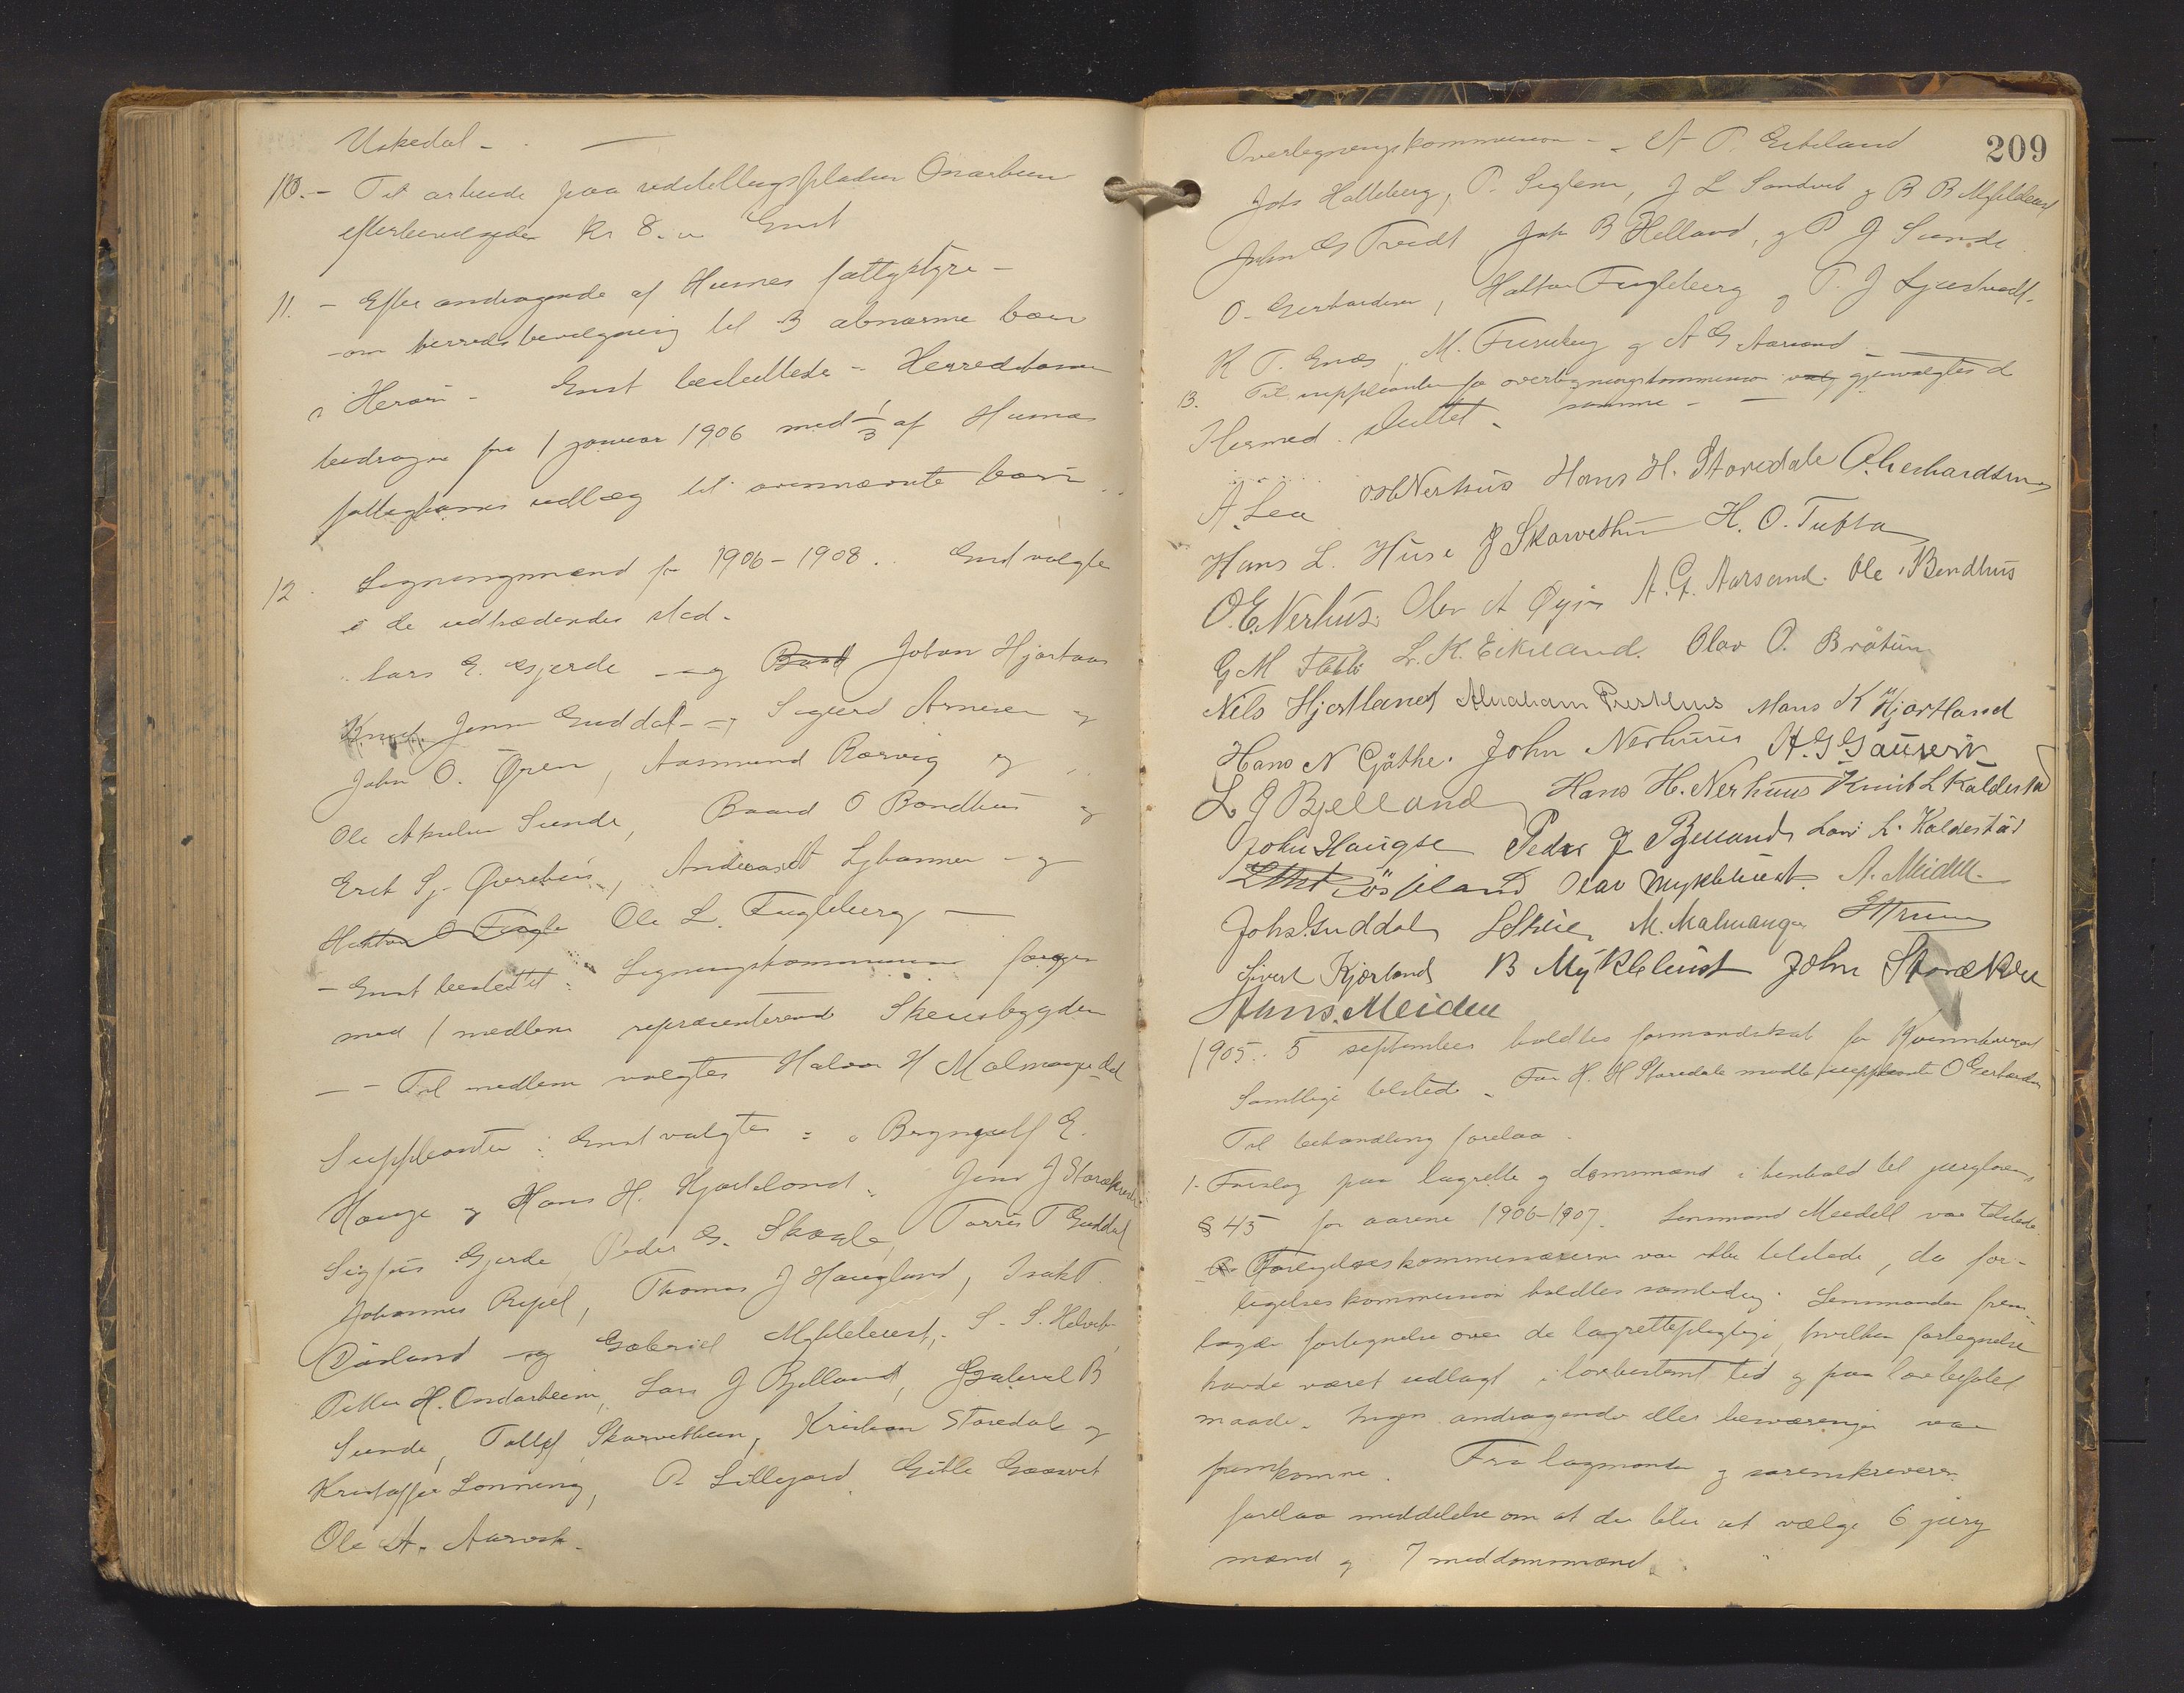 Uskedal -
10. - Til arbeide paa udstillingspladsen Onarheim
efterbevilgedes Kr 8.- Enst
11. - Efter andragende af Husnes fattigstyre -
om herredsbevilgning til 3 abnorme børn
i Herøen - Enst besluttede - Herredskassen
bidrager fra 1 januar 1906 med 1/3 af Husnes
fattigkasses udlæg til ovennævnte børn
12. Ligningsmænd for 1906-1908. Enst valgtes
i de udtrædendes sted -
Lars E. Gjerde og Johan Hjortaas
Knut Jensen Guddal - Sigurd Arnesen og
John O. Øren, Aasmund Rørvig og
Ole Akselsen Sunde, Baard O Bondhus og
Erik Sj. Øvrebøe, Andreas Ljbanner - og
Ole L. Fugleberg -
- Enst besluttet: Ligningskommissionen forøges
med 1 medlem repræsenterende Skeisbygden
- Til medlem valgtes Halvor H Malmange dal
Suppleanter: Enst valgtes: Bryngjulf E.
Hauge og Hans H. Hjortland, Jens J Storækre
Sigfus Gjerde, Peder G. Skaale, Torris T Guddal
Johannes Røpel, Thomas J Haugland, Isak T.
Døsland og Gabriel Myklebust, S. S. Helvik
Petter H. Ondarheim, Lars J Bjelland, Gabriel B
Sunde, Tollef Skarvethun, Kristian Storedale og
Kristoffer Lønning, P. Lillegard, Gitle Gaasvik
Ole A. Aarvik.
209
Overligningskommission - A T. Eikeland
Johs Halleberg, P. Seglem, J L Sandvik og B B Myklebust
John G Tvedt, Joh B Helland, og P J Sunde
O. Gerhardsen, Halvor Fugleberg og T. J Ljostvedt.
K T. Enes, M. Furuberg og A G Aarsand
13. Til suppleanter for overligningskommission gjenvalgtes de
samme -
Hermed sluttet.
A. Lea OH Nerhus Hans H. Storedale O. Gerhardsen
Hans L. Huse J Skarvethun H. O. Tufta
O. E. Nerhus. Olav A Øyjen A. G. Aarsand. Ole Bondhus
G M Flatebø L. K. Eikeland. Olav O. Bråtun
Nils Hjortland Abraham Prestehus Mons K Hjortland
Hans N Gjøthe. John Nerhuus H. G Gausvik
L J Bjelland Hans H. Nerhuus Knut L Kaldestad
John Haugse Peder J Bjelland Lars L. Kaldestad
Olav Myklebust. A. Meidell.
Johs. Guddal L Skeie, M. Malmanger
Sivert Kjærland B Myklebust John Storækre
Hans Meidell
1905. 5 september holdtes formandskab for Kvinnherred
Samtlige tilstede - For H. H Storedale mødte suppleanten O Gerhardsen
Til behandling forelaa.
1. Forslag paa lagrette og domsmænd i henhold til jurylovens
§ 45 for aarene 1906-1907. Lensmand Meidell var tilstede
Forligelseskommissærerne var ikke tilstede, da for-
ligelseskommission holdtes samtidig. Lensmanden frem-
lagde fortegnelse over de lagrettepligtige, hvilken fortegnelse
havde været udlagt i lovbestemt tid og paa lovbefalet
maade. Ingen andragender eller besværinger var
fremkomne. Fra lagmanden og sorenskriveren
forelaa meddelelse om at der blir at vælge 6 jury
mænd og 7 meddomsmænd.